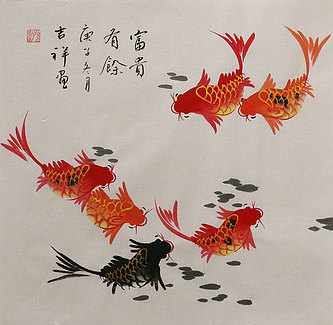 富貴
有餘
庚子冬月
吉祥畫